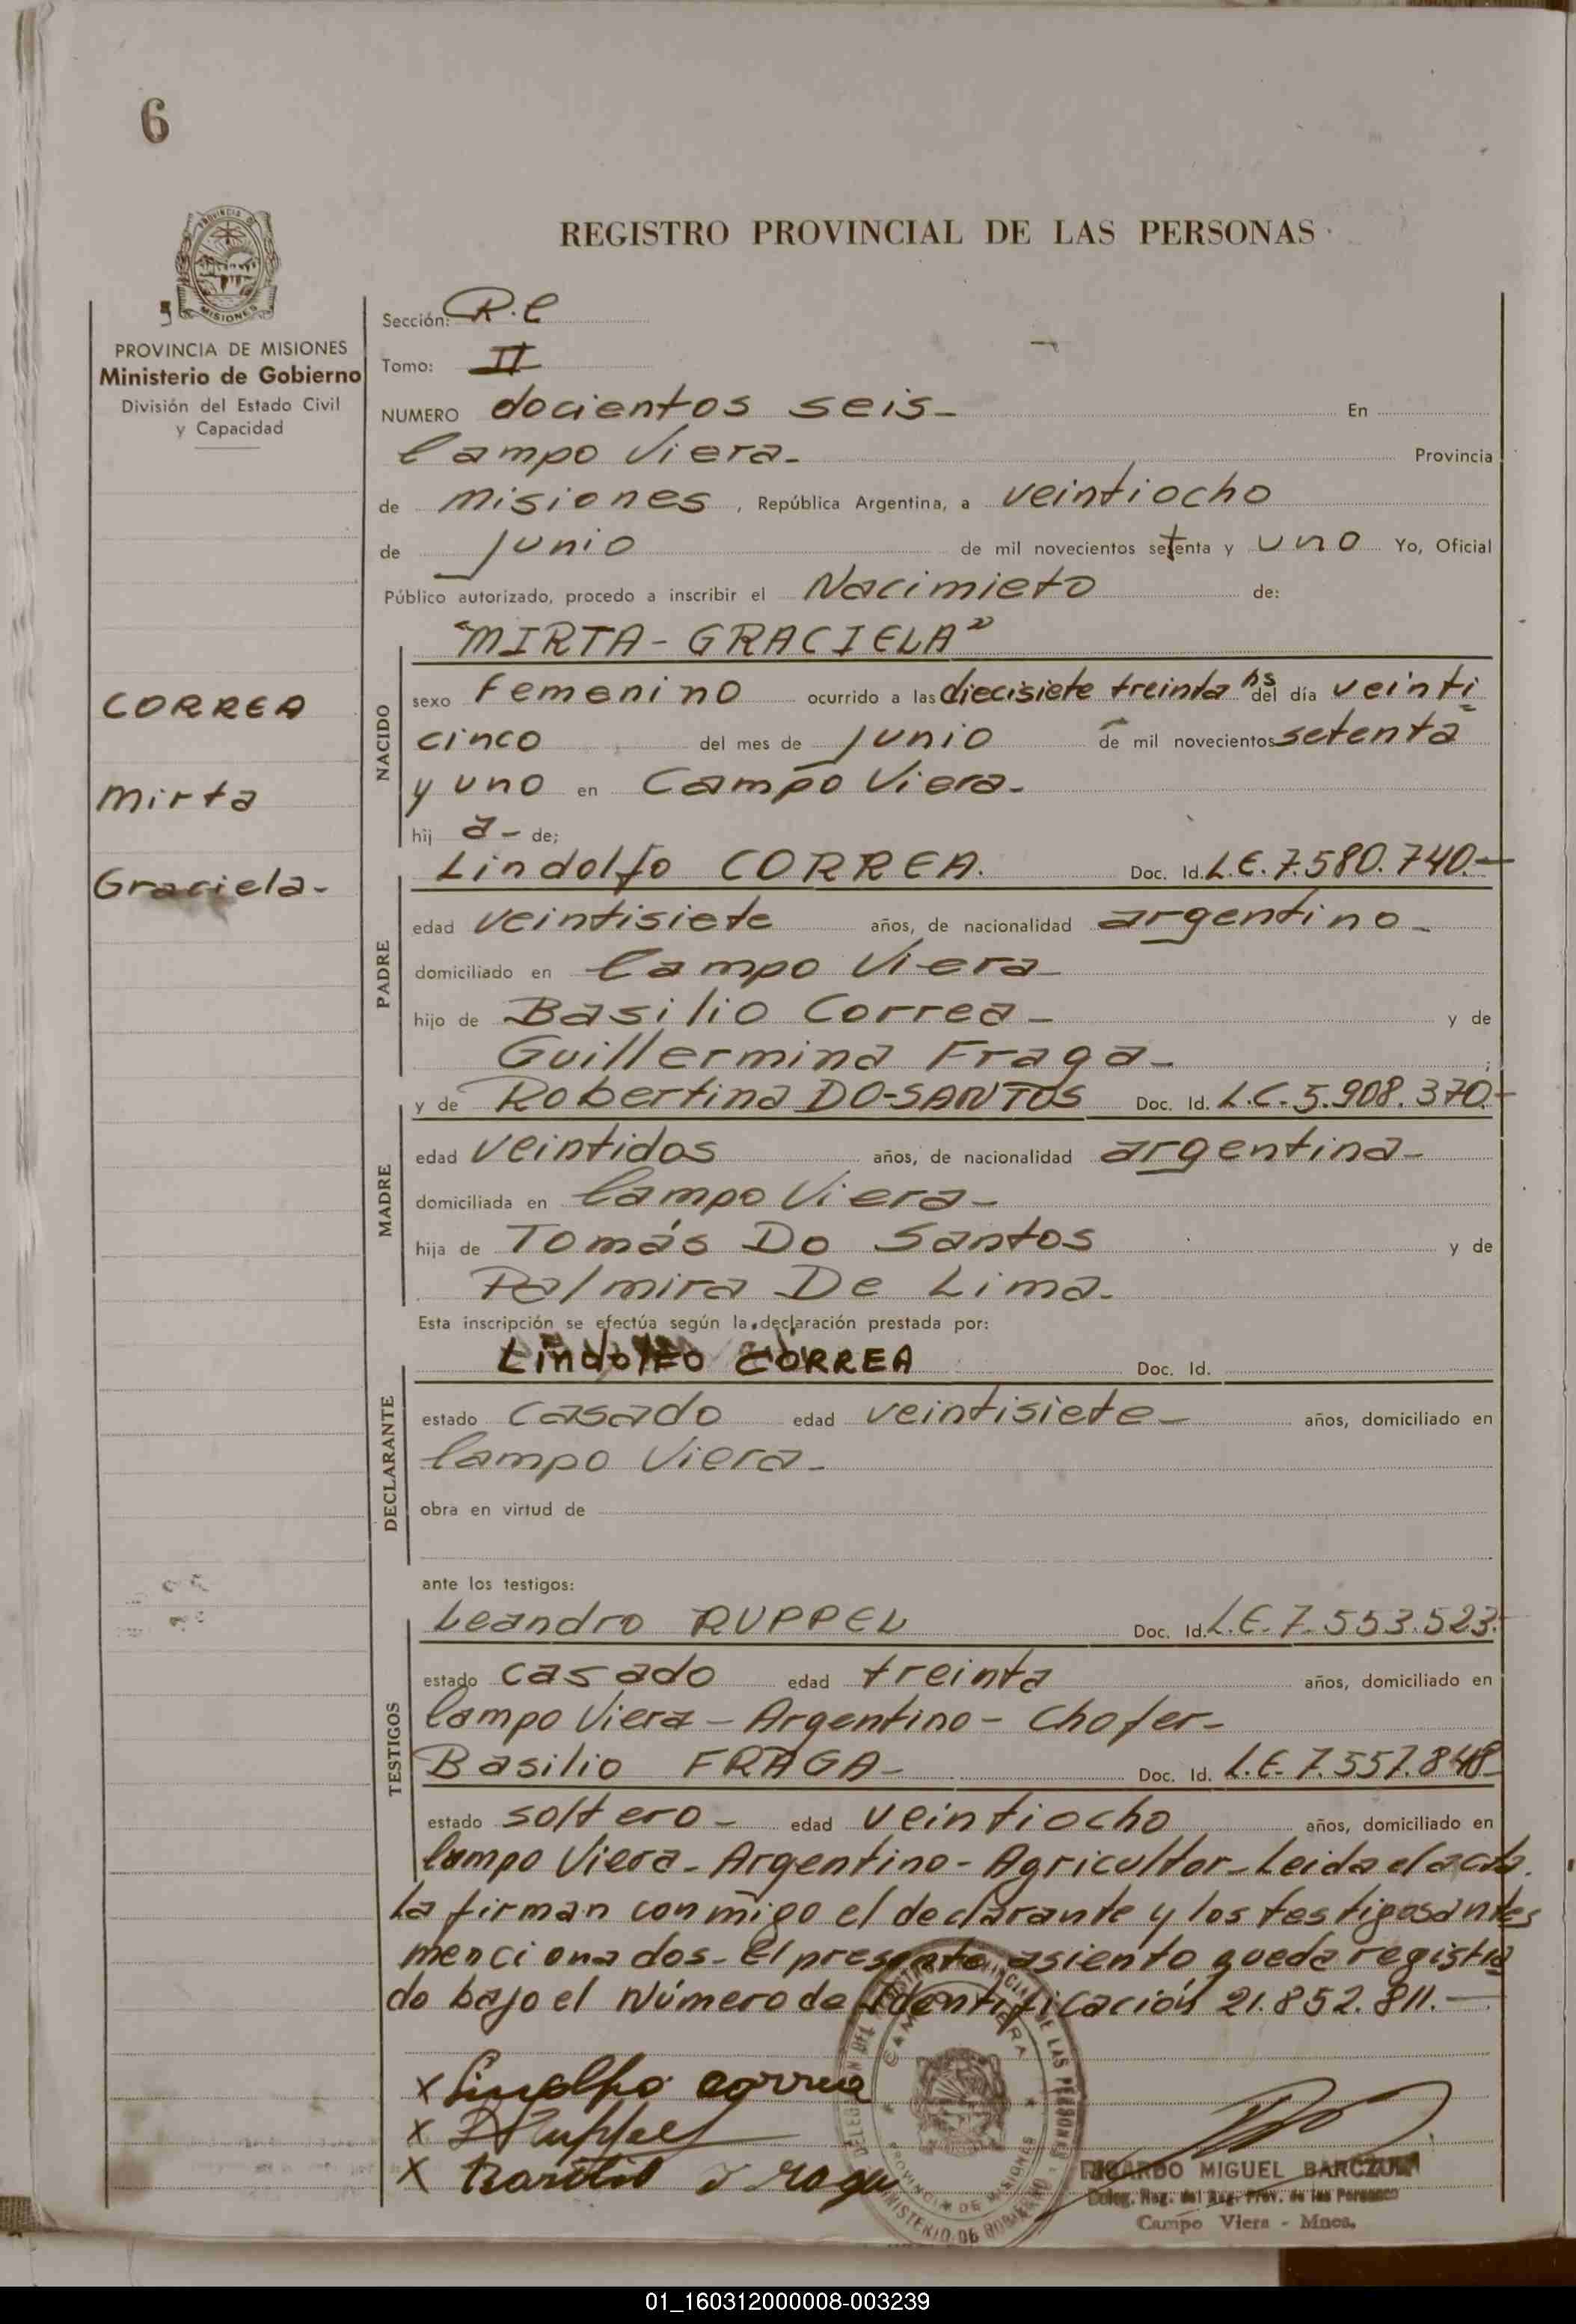 6
REGISTRO PROVINCIAL DE LAS PERSONAS
MISIONES
PROVINCIA DE MISIONES
Ministerio de Gobierno
División del Estado Civil
y Capacidad
CORREA
Mirta
Graciela-
Sección: R.C
Tomo: II
NUMERO docientos seis- En
Campo Viera- Provincia
de Misiones, República Argentina, a veintiocho
de junio de mil novecientos setenta y uno Yo, Oficial
Público autorizado, procedo a inscribir el Nacimieto de:
"MIRTA-GRACIELA"
NACIDO
sexo Femenino ocurrido a las diecisiete treinta hs del día veinti=
cinco del mes de junio de mil novecientos setenta
y uno en Campo Viera-
hij a- de;
PADRE
Lindolfo CORREA. Doc. Id. L.E. 7.580.740.-
edad veintisiete años, de nacionalidad argentino-
domiciliado en Campo Viera-
hijo de Basilio Correa- y de
Guillermina Fraga- ;
MADRE
y de Robertina DO-SANTOS Doc. Id. L.C.-5.908.370.-
edad veintidos años, de nacionalidad argentina-
domiciliada en Campo Viera-
hija de Tomás Do Santos y de
Palmira De Lima-
Esta inscripción se efectúa según la declaración prestada por:
DECLARANTE
LindoLFO CORREA Doc. Id.
estado casado edad veintisiete- años, domiciliado en
Campo Viera-
obra en virtud de
ante los testigos:
TESTIGOS
Leandro RUPPEL Doc. Id. L.E.-7.553.523.-
estado casado edad treinta años, domiciliado en
Campo Viera-Argentino-Chofer-
Basilio FRAGA- Doc. Id. L.E-7.557.848-
estado soltero- edad veintiocho años, domiciliado en
Campo Viera-Argentino-Agricultor-Leida el acta.
La firman conmigo el declarante y los testigos antes
mencionados-El presente asiento queda registra
do bajo el Número de Identificación 21.852.811.-
x Lindolfo correa
x Ruppel
x Basilio Fraga
CAMPO VIERA
PROVINCIA DE MISIONES
MINISTERIO DE GOBIERNO
RICARDO MIGUEL BARCZUK
Deleg. Reg. del Reg. Prov. de las Personas
Campo Viera - Mnes.
01_160312000008-003239